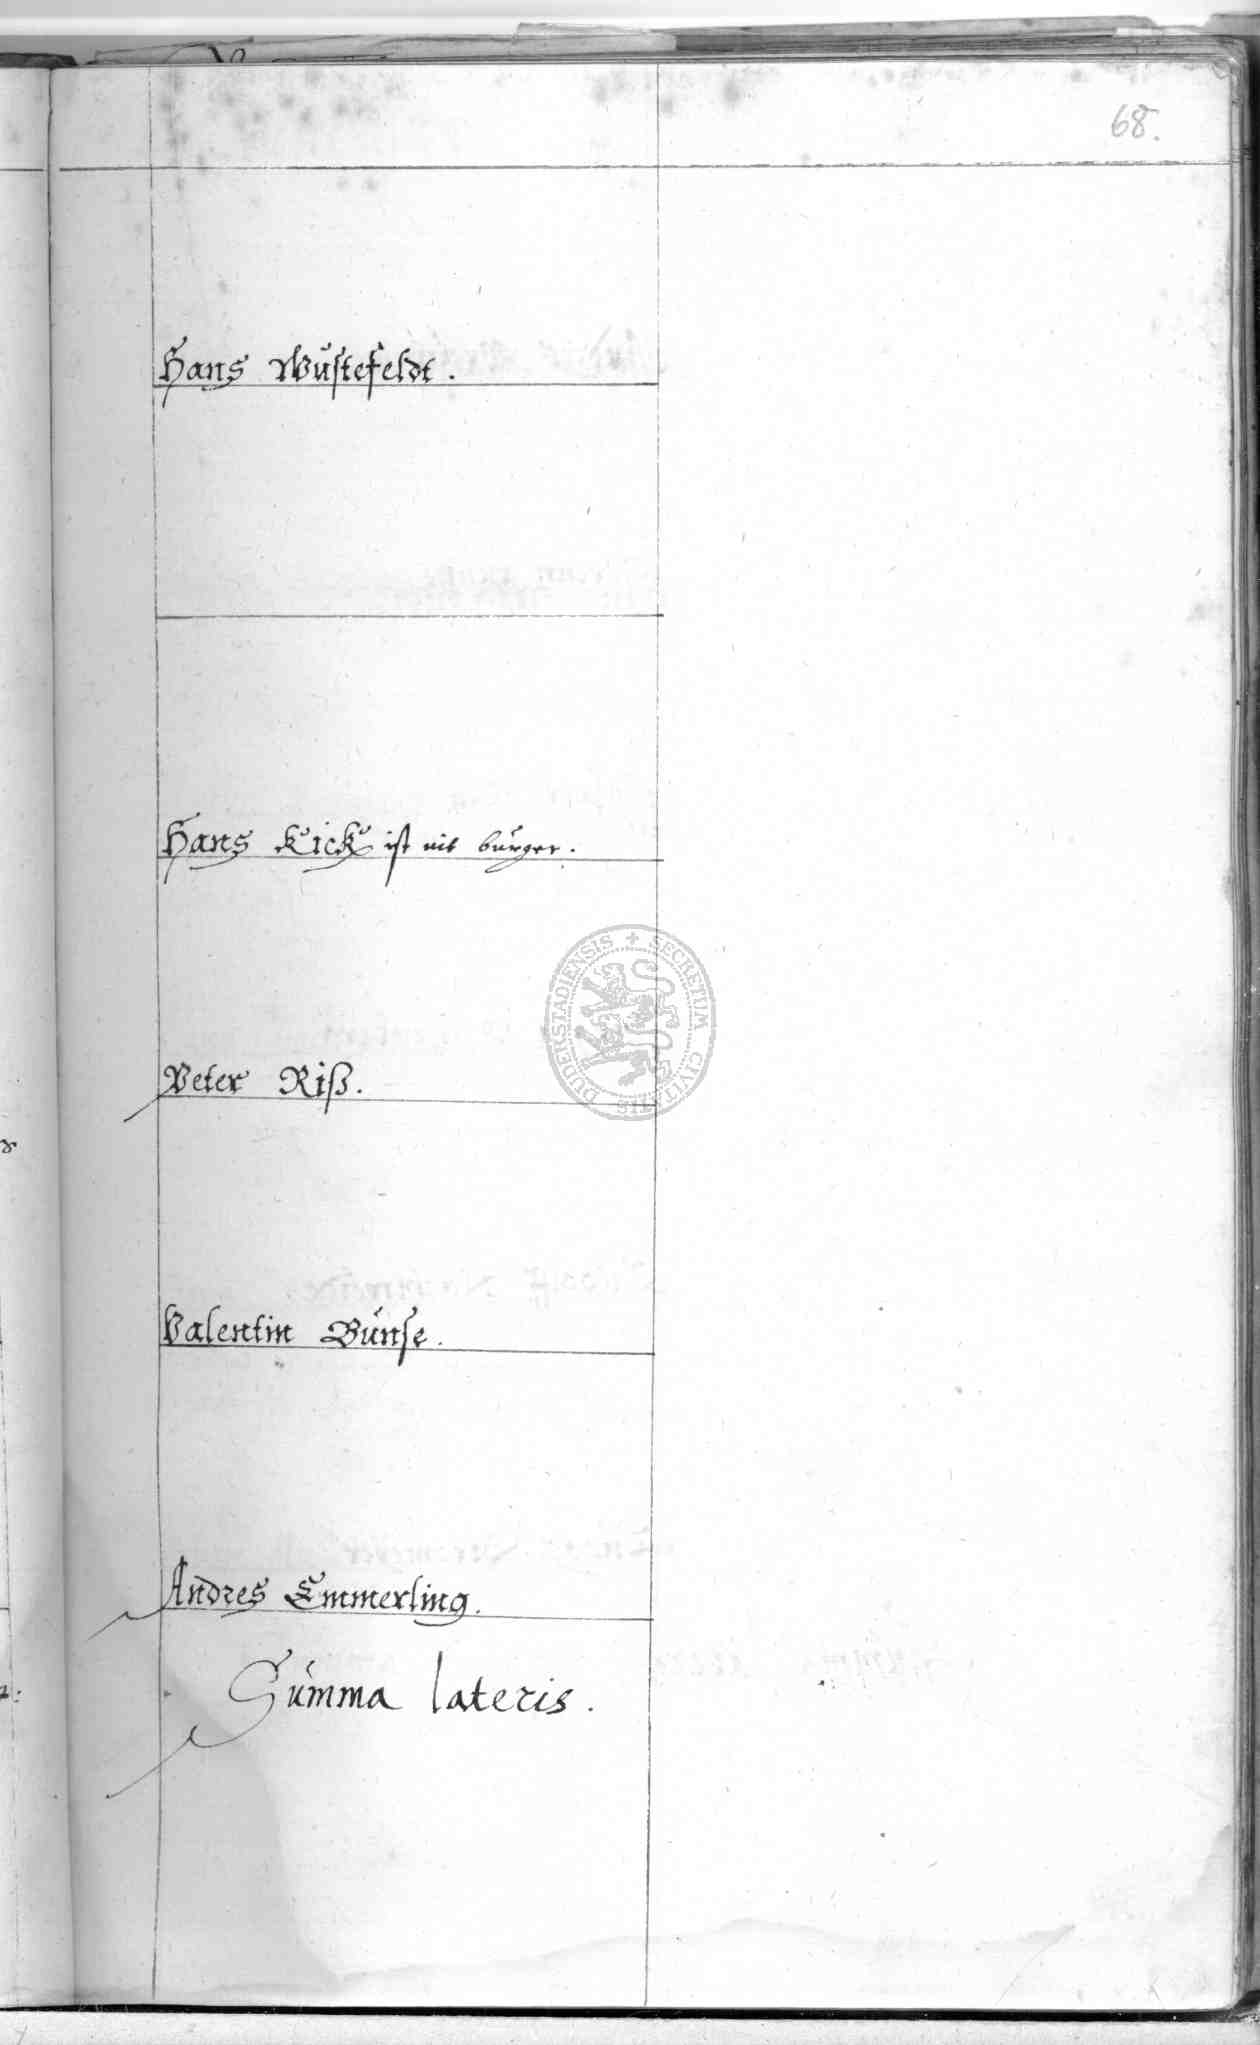 68.
Hans Wüstefeldt.
Hans Kick ist nit bürger.
Peter Riß.
DUDERSTADIENSIS + SECRETUM CIVITATIS
Valentin Bünse.
Andres Emmerling.
Summa lateris.